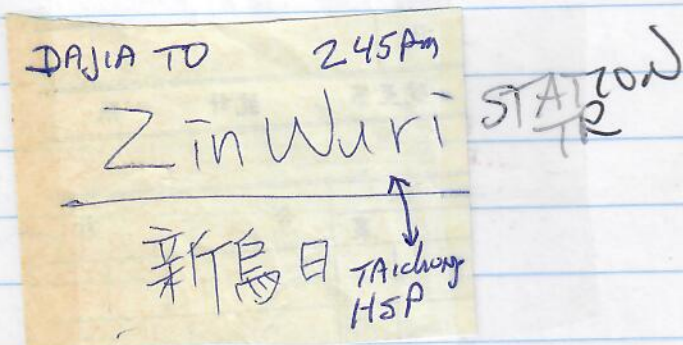 DAJIA TO 245pm
Zin Wuri STATION
TR
新烏日 TAichung
HSR